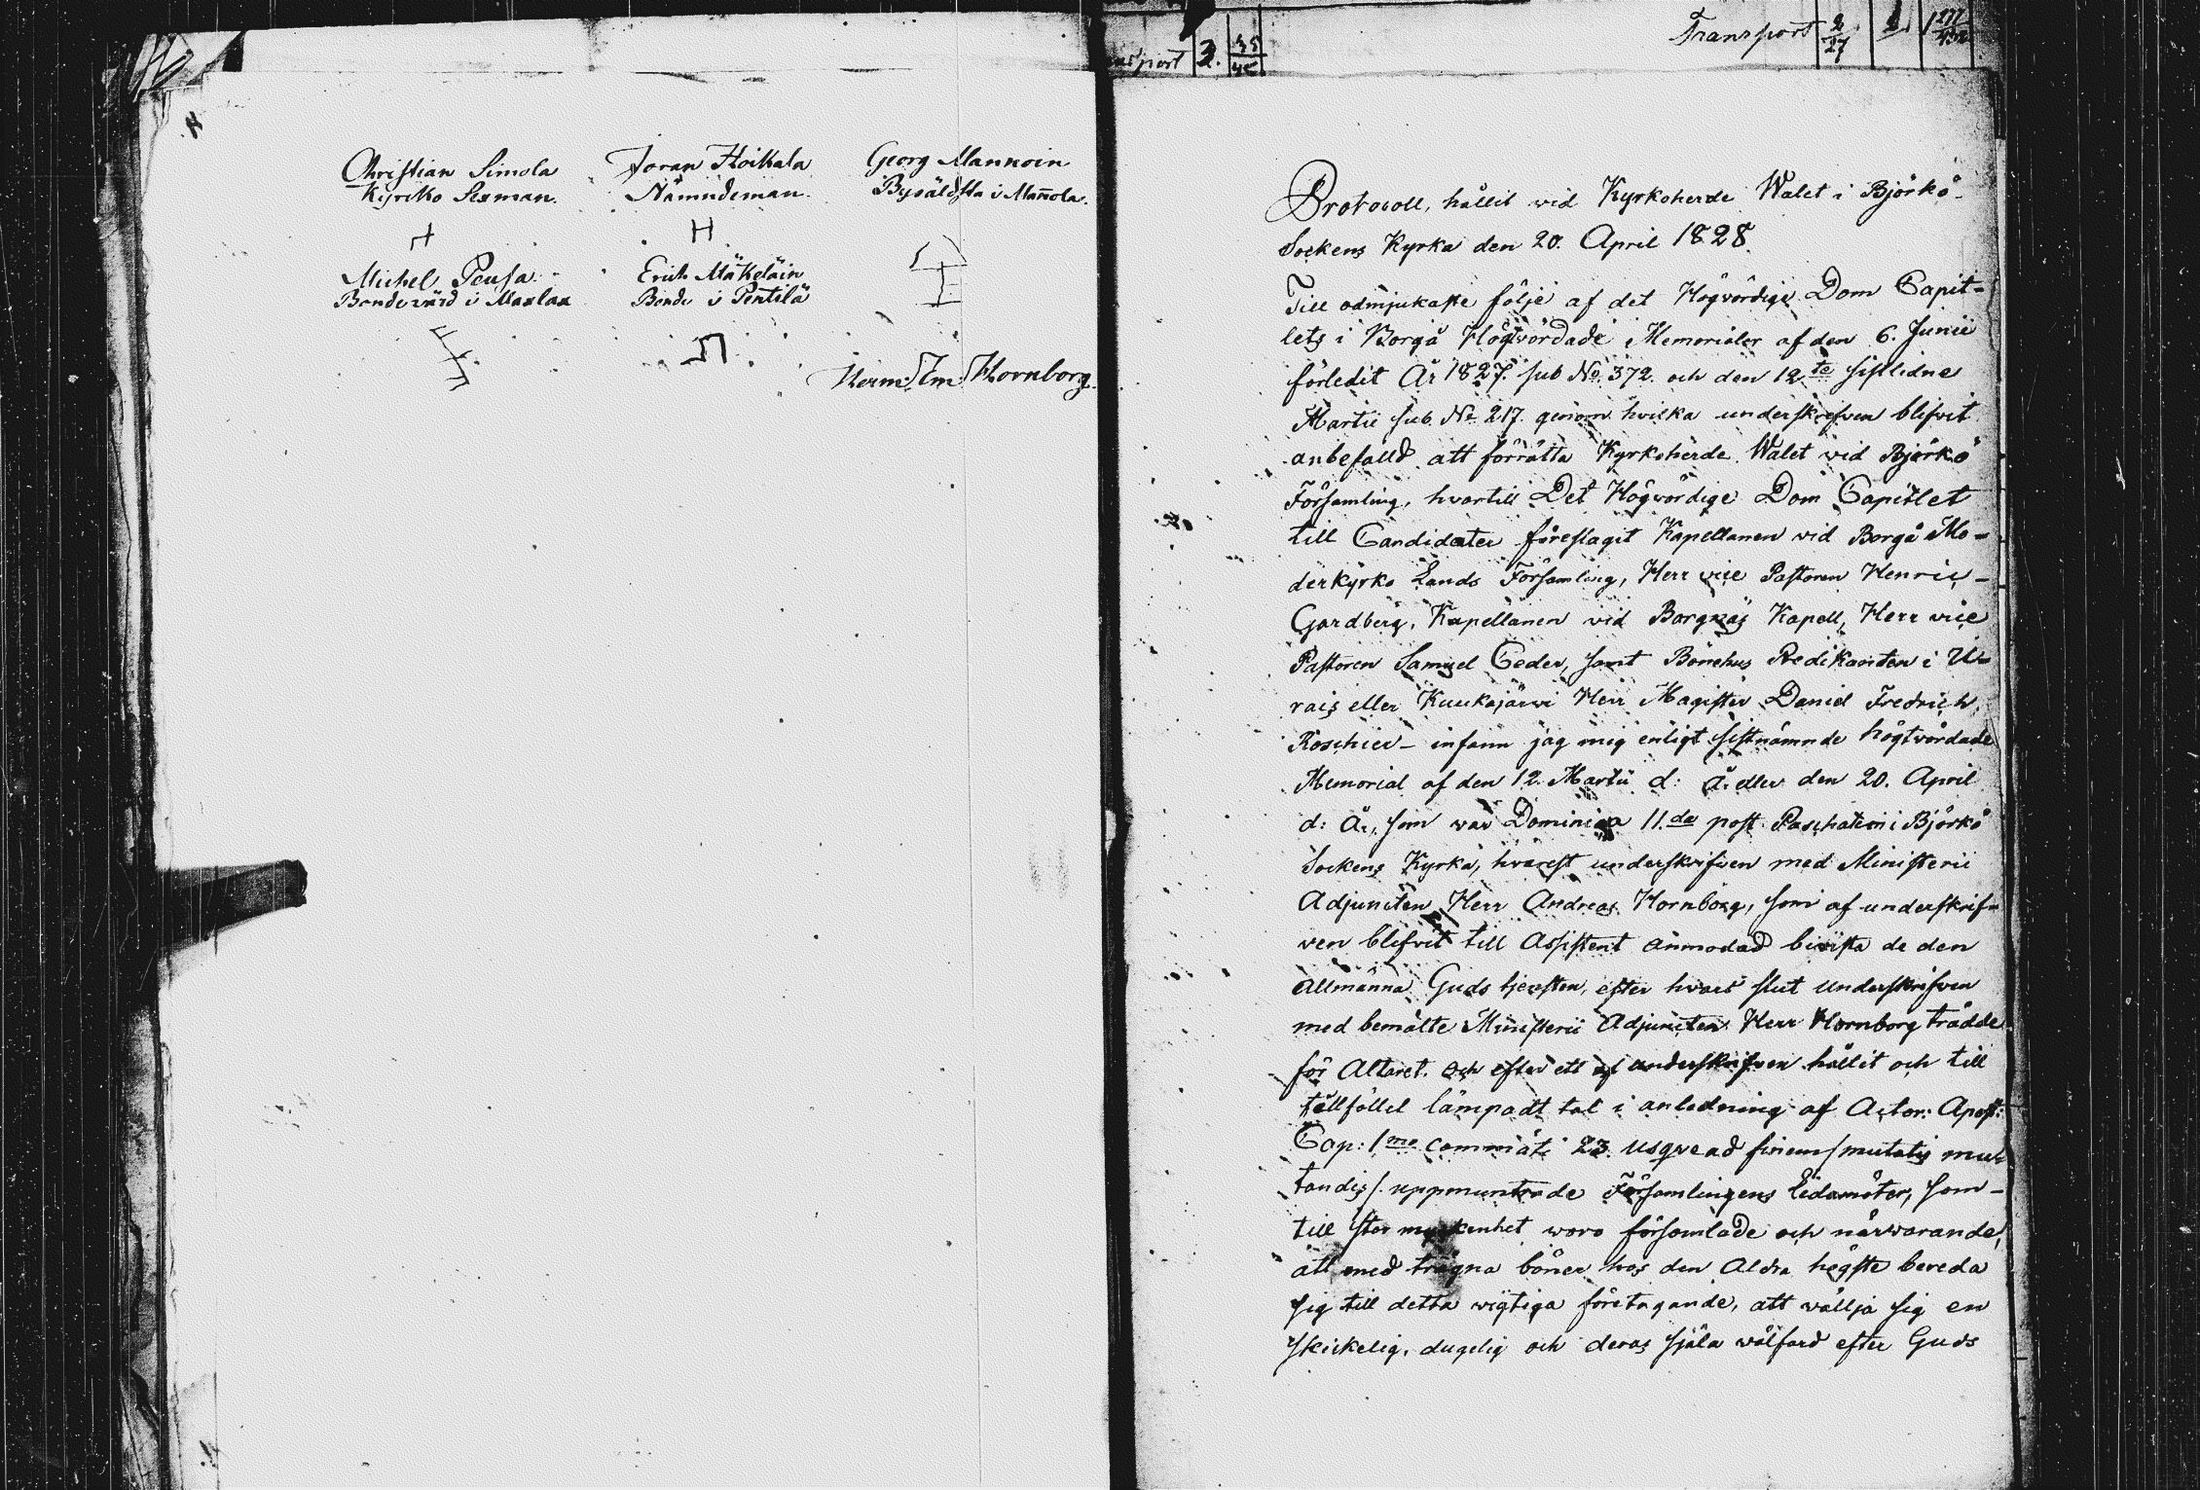 Christian Simola
Kyrko Sexman.
Joran Hoikala
Nämndeman.
Georg Mannoin
Byäldsta i Mañola.
Michel Peusa
Bondevärd i Maslax
Erich Mäkeläin
Bonde i Pentilä
Herm: Im: Hornborg.
sport 3. 35 45
Transport 2 27 1
Protocoll, hållit vid Kyrkoherde Walet i Björkö
Sockens Kyrka den 20. April 1828.
Till ödmjukaste följe af det Högvördige Dom Capit-
lets i Borgå Högtvördade Memorialer af den 6. Junii
förledit År 1827. sub No. 372. och den 12te sistlidne
Martii sub. No 217. genom hvilka underskrefven blifvit
anbefalld att förrätta Kyrkoherde Walet vid Björkö
Församling, hvartill Det Högvördige Dom Capitlet
till Candidater föreslagit Kapellanen vid Borgå Mo-
derkyrko Lands Församling, Herr vice Pastoren Henric
Gardberg, Kapellanen vid Borgnäs Kapell, Herr vice
Pastoren Samuel Ceder, samt Bönehus Predikanten i U-
rais eller Kuukajärvi Herr Magister Daniel Fredrich
Roschier - infann jag mig enligt sistnämnde högtvördade
Memorial af den 12. Martii d: å: eller den 20. April
d: År, som var Dominica 11.da post Paschatem i Björkö
Sockens Kyrka, hvarest underskrifven med Ministerii
Adjuncten Herr Andreas Hornborg, som af underskrif-
ven blifvit till Assistent anmodad bivista de den
Allmänna Guds tjensten, efter hvars slut Underskrifven
med bemälte Ministerii Adjuncten Herr Hornborg trädde
för Altaret. Och efter ett af underskrifven hållit och till
tillfället lämpadt tal i anledning af Actor: Apost:
Cap: 1mo commáti 23. usqve ad finem /mutatis mu
tandis/. uppmuntrade Församlingens Ledamöter, som
till stor myckenhet voro församlade och närvarande,
att med trägna böner hos den Aldra högste bereda
sig till detta vigtiga företagande, att vällja sig en
skickelig, dugelig och deras själa välfärd efter Guds